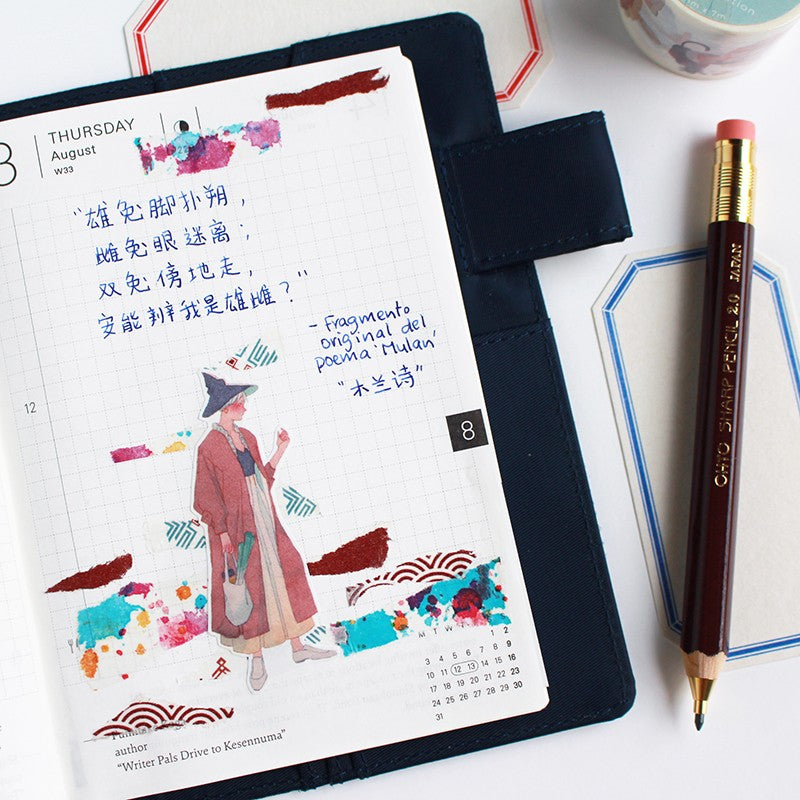 3
THURSDAY
August
W33
“雄兔脚扑朔，
雌兔眼迷离；
双兔傍地走，
安能辨我是雄雌？”
- Fragmento
original del
poema 'Mulan',
“木兰诗”
12
8
M T W
1 2
3 4 5 6 7 8 9
10 11 12 13 14 15 16
17 18 19 20 21 22 23
24 25 26 27 28 29 30
31
author
“Writer Pals Drive to Kesennuma”
OHTO SHARP PENCIL 2.0 JAPAN